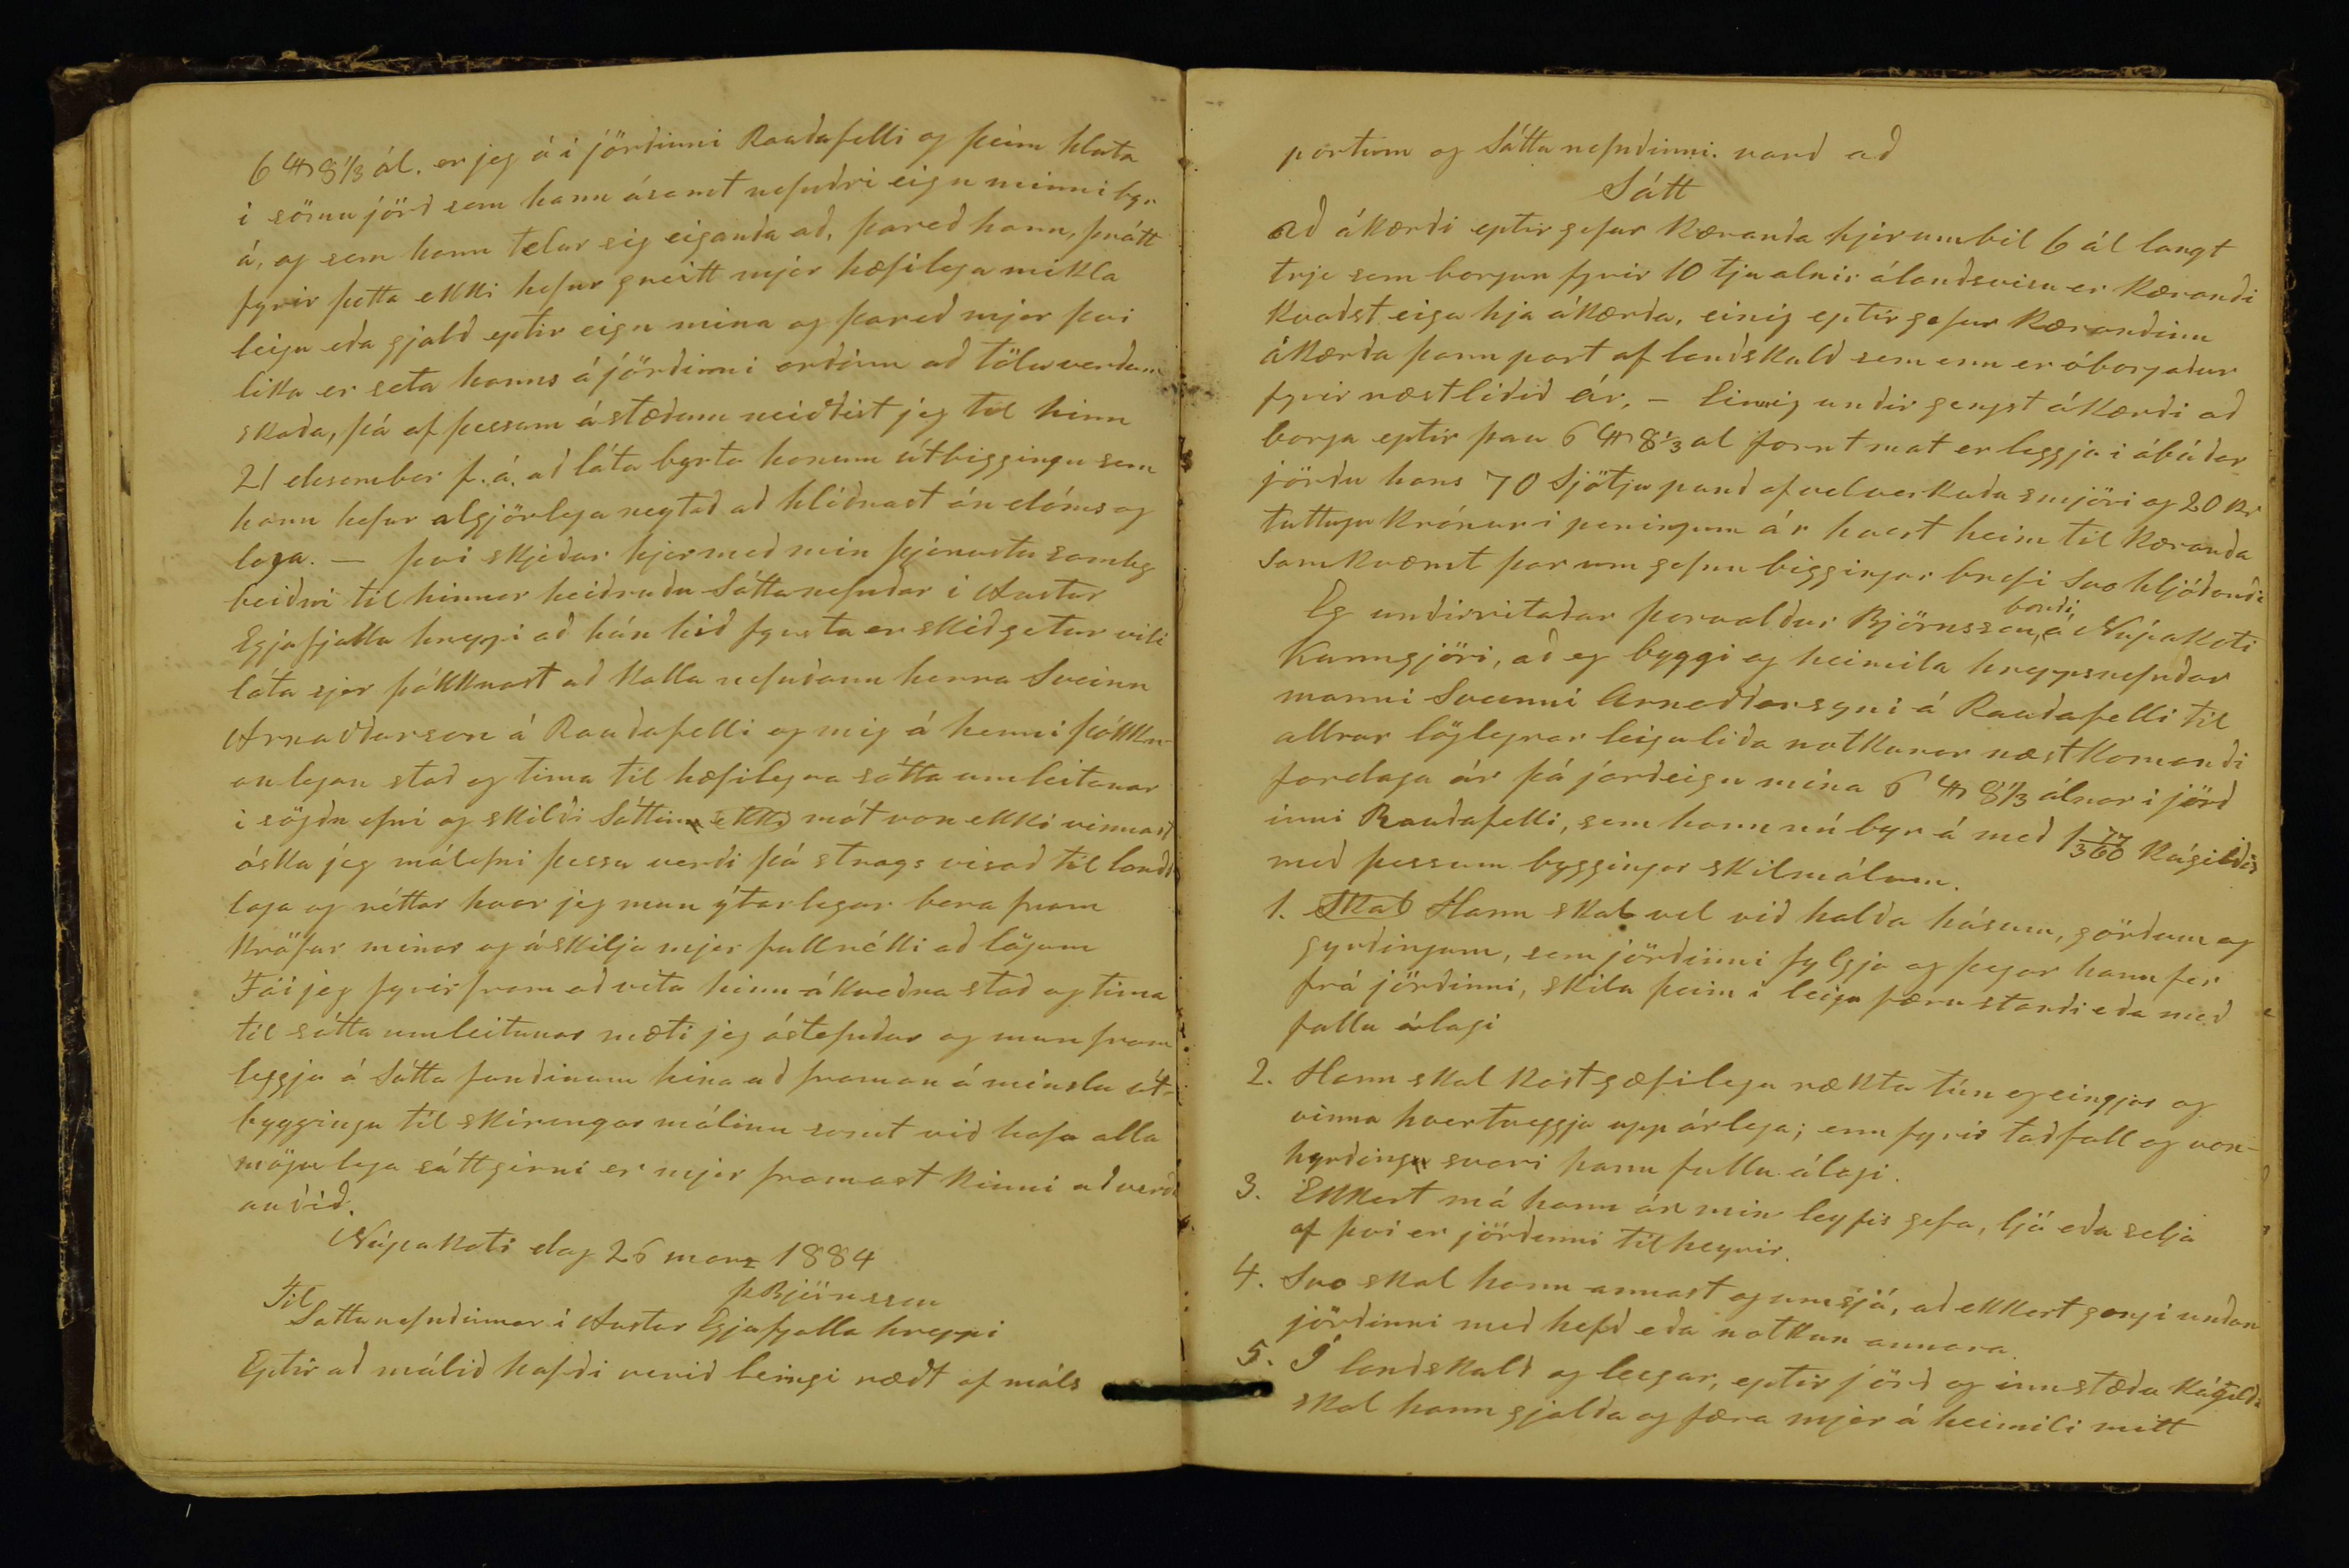 6 hndr 8 1/3 ál. er jeg á í jörðinni Rauðafelli og þeim hluta
i sömu jörð sem hann ásamt nefndri eign minni byr
á, og sem hann telur sig eiganda að, þareð hann, þrátt
fyrir þetta ekki hefur greitt mjer hæfilega mikla
leigu eða gjald eptir eign mina og þareð mjer þvi
lika er seta hanns á jörðinni orðinn að tölu verðum
skaða, þá af þessum ástæðum neiddist jeg til hinn
21 desember f. á. að láta byrta honum útbiggingu sem
hann hefur algjörlega neytað að hlíðnast án dóms og
laga. — því skjeður hjermeð min þjenustu samleg
beiðni til hinnar heiðruðu Sáttanefndar i Austur
Eyjafjalla hreppi að hún hið fyrsta er skéð getur vili
láta sjer þókknast að kalla nefndann herra Sveinn
Arnoddarson á Rauðafelli og mig á henni þókkn-
anlegan stað og tima til hæfilegra sátta umleitanar
i sögðu efni og skildi Sáttinn mót von ekki vinnast
óska jeg málefni þessu verði þá strags visað til lands
laga og réttar hvar jeg mun ýtarlegar bera fram
kröfur minar og áskilja mjer fullrétti að lögum
Fái jeg fyrirfram að vita hinn ákveðna stað og tima
til sátta umleitunar mæti jeg óstefndur og mun fram
leggja á Sátta fundinum hina að framan áminstu út-
byggingu til skíringar málinu samt við hafa alla
mögulega sáttgirni er mjer framast kinni að verða
auðið.
Núpakoti dag 26 marz 1884
þ Björnsson
Til
Sáttanefndarinnar í Austur Eyjafjalla hreppi
Eptir að málið hafði verið leingi rædt af máls
portum og Sátta nefndinni. varð að
Sátt
að ákærði eptir gefur Kæranda hjerumbil 6 ál langt
trje sem borgun fyrir 10 tju alnir álandsvisu er Kærandi
kvaðst eiga hja ákærða, einig eptir gefur Kærandinn
ákærða þann part af landskuld sem enn er óborgaður
fyrir næstliðið ár, — Einnig undir gengst ákærði að
borga eptir þau 6 hndr 8 1/3 al fornt mat er leggja i ábúðar
jörðu hans 70 Sjötju pund af vel verkuðu smjöri og 20 kr
tuttugu krónur i peningum ár hvert heim til kæranda
Samkvæmt þar um gefnu biggingar brefi svo hljóðandi
Eg undirritaður þorvaldur Björnsson, bondi á Núpakoti
Kunngjöri, að eg byggi og heimila hreppsnefndar
manni Sveinni Arnoddarsyni á Rauðafelli til
allrar löglegrar leiguliða notkunar næstkomandi
fardaga ár þá jarðeign mína 6 hndr 8 1/3 álnar i jörð
inni Rauðafelli, sem hann nú byr á með 1 77/360 kúgildis
með þessum byggingar skilmálum.
1. Skal Hann skal vel við halda húsum, görðum og
gyrðingum, sem jörðinni fylgja og þegar hann fer
frá jörðinni, skila þeim i leigu færu standi eða með
fullu álagi
2. Hann skal kostgæfilega rækta tún og eingjar og
vinna hvertveggja upp árlega; enn fyrir taðfall og van-
hyrðingu svari hann fullu álagi.
3. Ekkert má hann án min leyfis gefa, ljá eða selja
af þvi er jörðunni tilheyrir.
4. Svo skal hann annast og umsjá, að ekkert gangi undan
jörðinni með hefð eða notkun annara.
5. Í landskuld og leigur, eptir jörð og innstæðu kúgildi
skal hann gjalda og færa mjer á heimili mitt